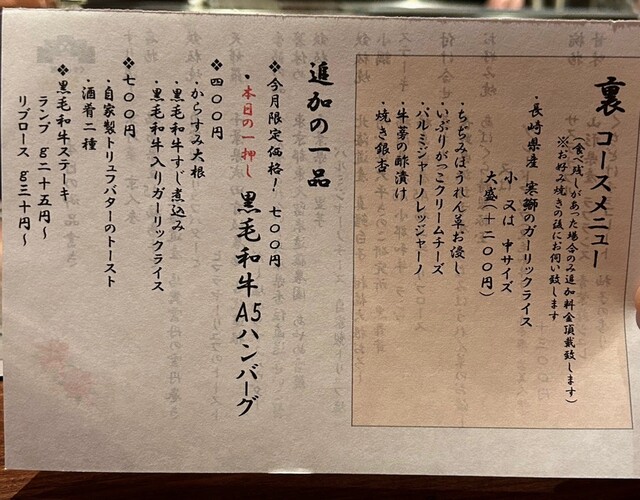 裏 コースメニュー
(食べ残しがあった場合のみ追加料金頂戴致します)
※お好み焼きの後にお伺い致します
・長崎県産 実鰤のガーリックライス
小 又は 中サイズ
大盛(+二〇〇円)
・ちぢみほうれん草お浸し
・いぶりがっこクリームチーズ
・パルミジャーノレッジャーノ
・牛蒡の酢漬け
・焼き銀杏
追加の一品
❖今月限定価格! 七〇〇円
・本日の一押し 黒毛和牛A5ハンバーグ
❖四〇〇円
・からすみ大根
・黒毛和牛すじ煮込み
・黒毛和牛入りガーリックライス
❖七〇〇円
・自家製トリュフバターのトースト
・酒肴二種
❖黒毛和牛ステーキ
ランプ g二十五円〜
リブロース g三十円〜